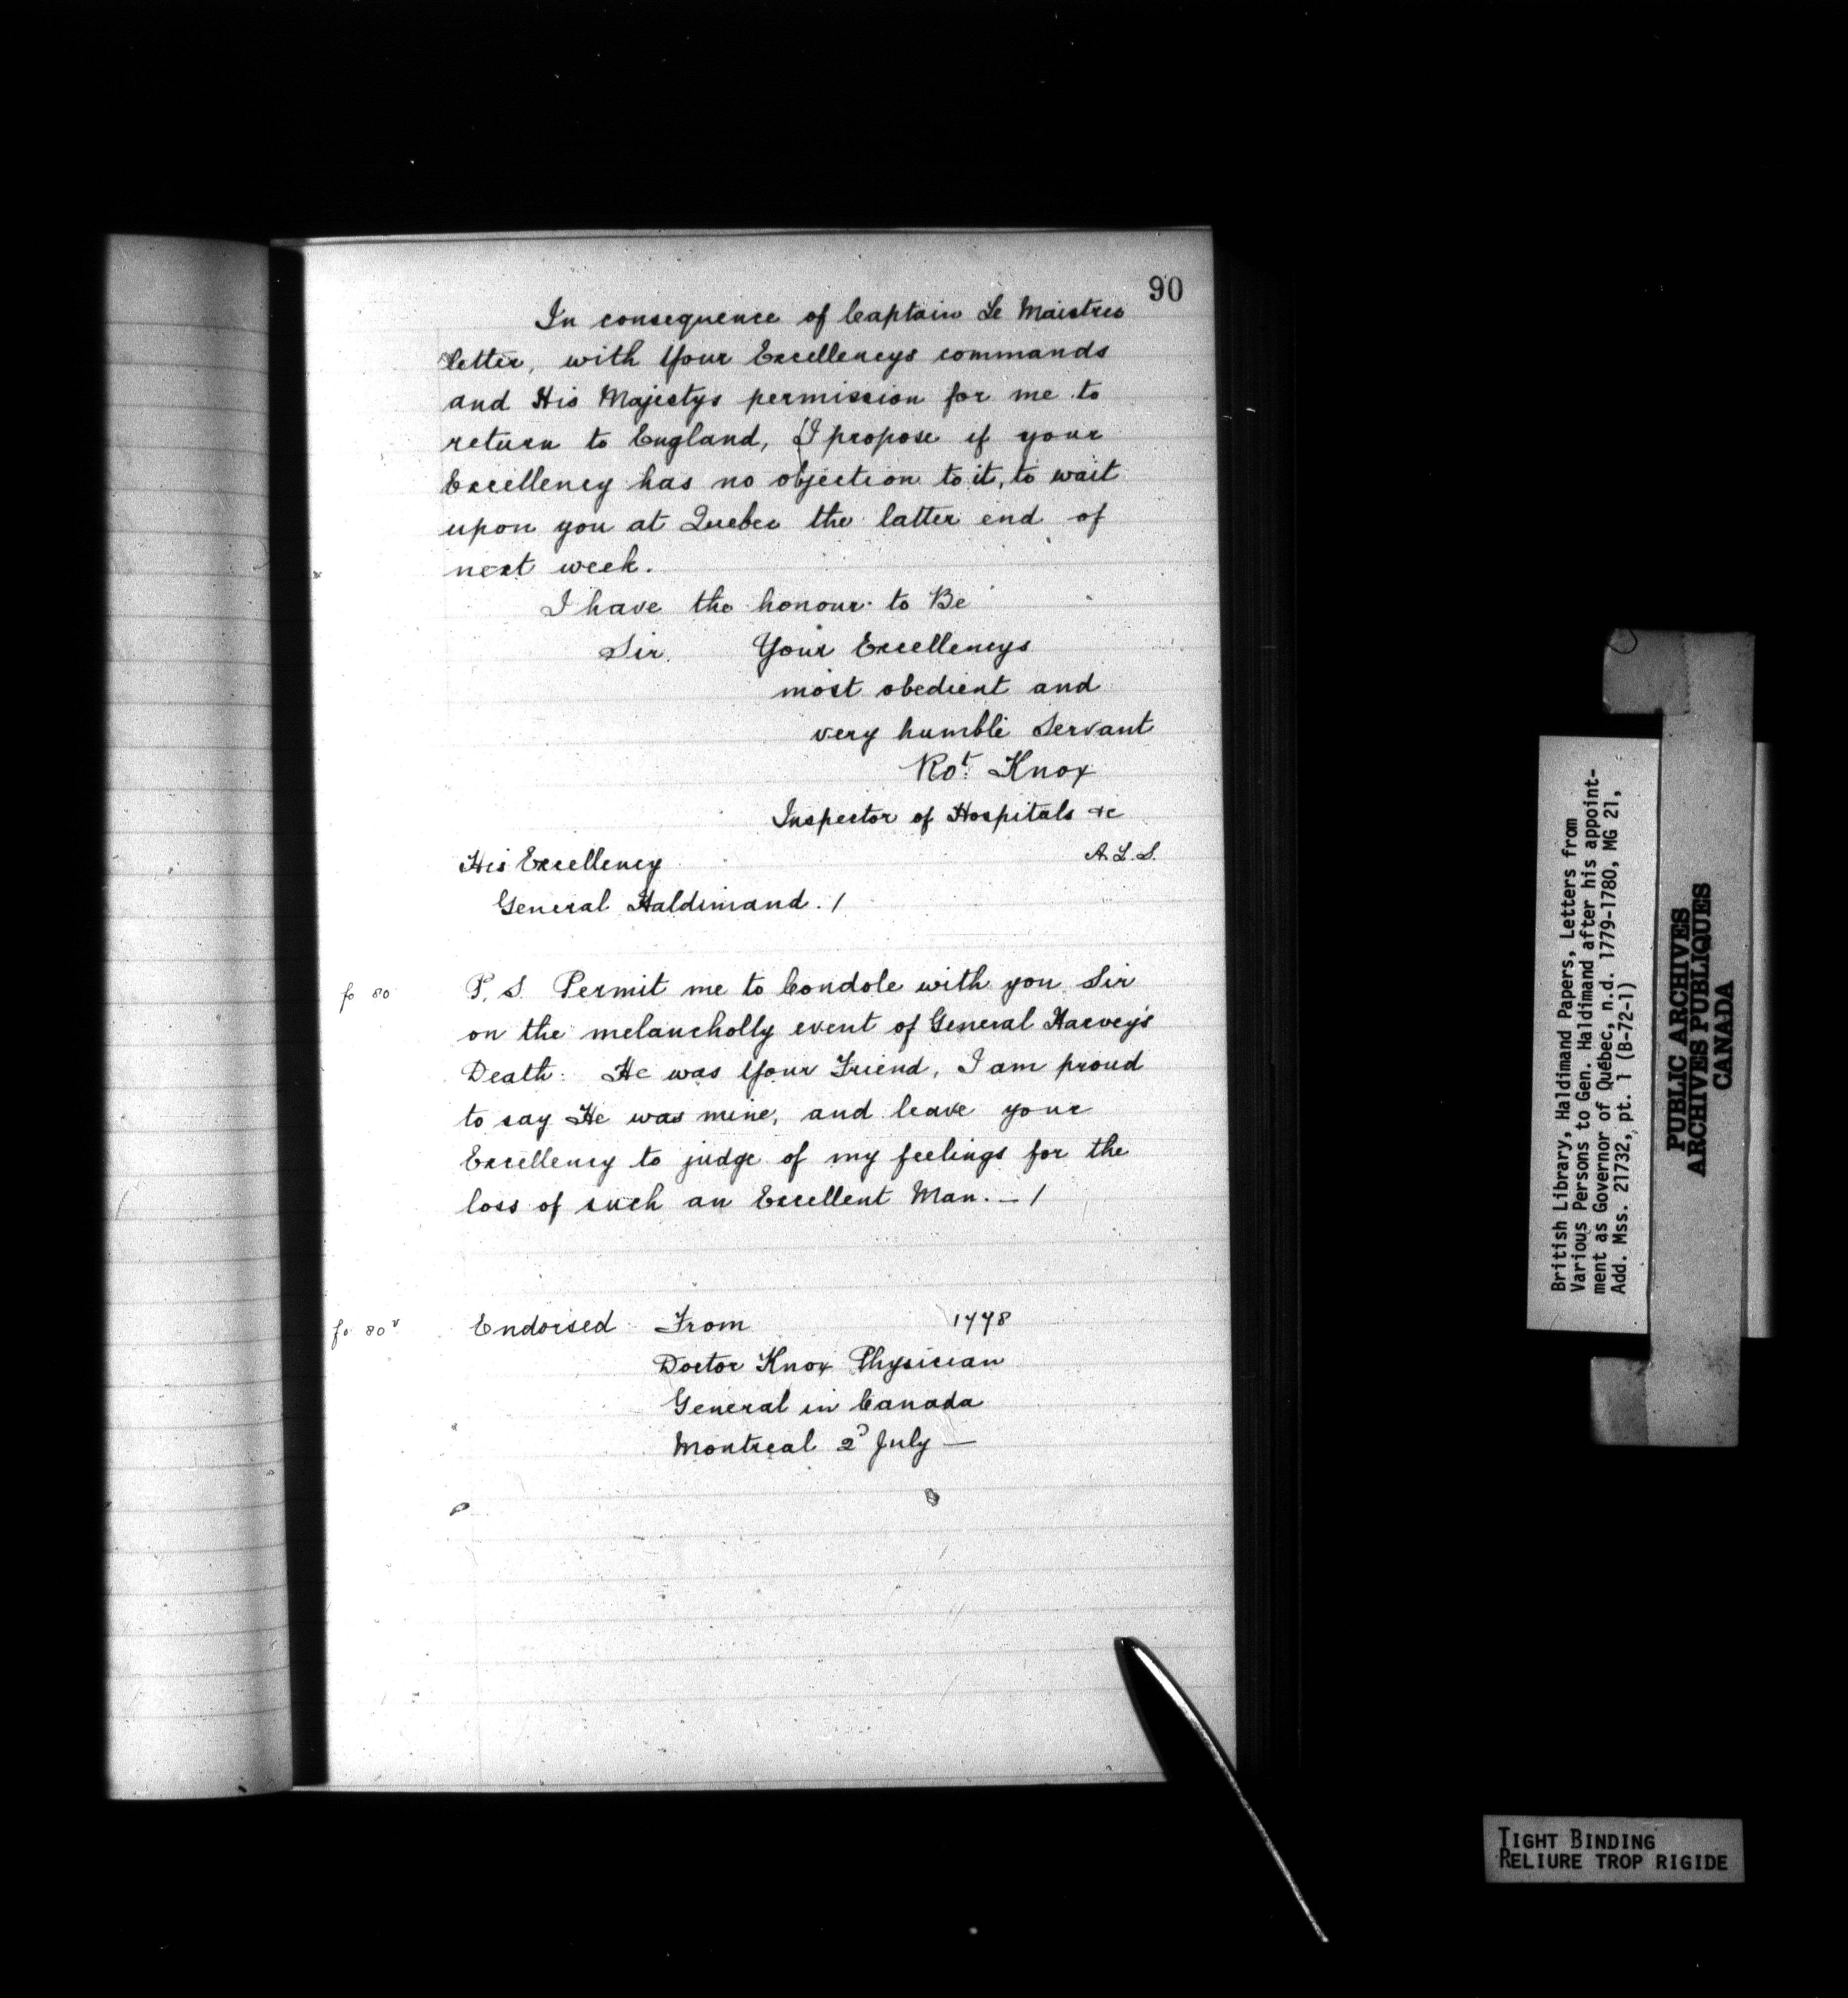 90
In consequence of Captain Le Maistres
letter, with Your Excellencys commands
and His Majestys permission for me to
return to England, I propose if your
Excellency has no objection to it, to wait
upon you at Quebec the latter end of
next week.
I have the honour to Be
Sir. Your Excellencys
most obedient and
very humble Servant
Rot. Knox
Inspector of Hospitals &c
A.L.S.
His Excellency
General Haldimand. /
fo 80
P.S. Permit me to Condole with you Sir
on the melancholly event of General Harvey's
Death. He was Your Friend, I am proud
to say He was mine, and leave your
Excellency to judge of my feelings for the
loss of such an Excellent Man. — /
fo 80v
Endorsed From 1778
Doctor Knox Physician
General in Canada
Montreal 2d July —
British Library, Haldimand Papers, Letters from
Various Persons to Gen. Haldimand after his appoint-
ment as Governor of Québec, n.d. 1779-1780, MG 21,
Add. Mss. 21732, pt. 1 (B-72-1)
PUBLIC ARCHIVES
ARCHIVES PUBLIQUES
CANADA
TIGHT BINDING
RELIURE TROP RIGIDE